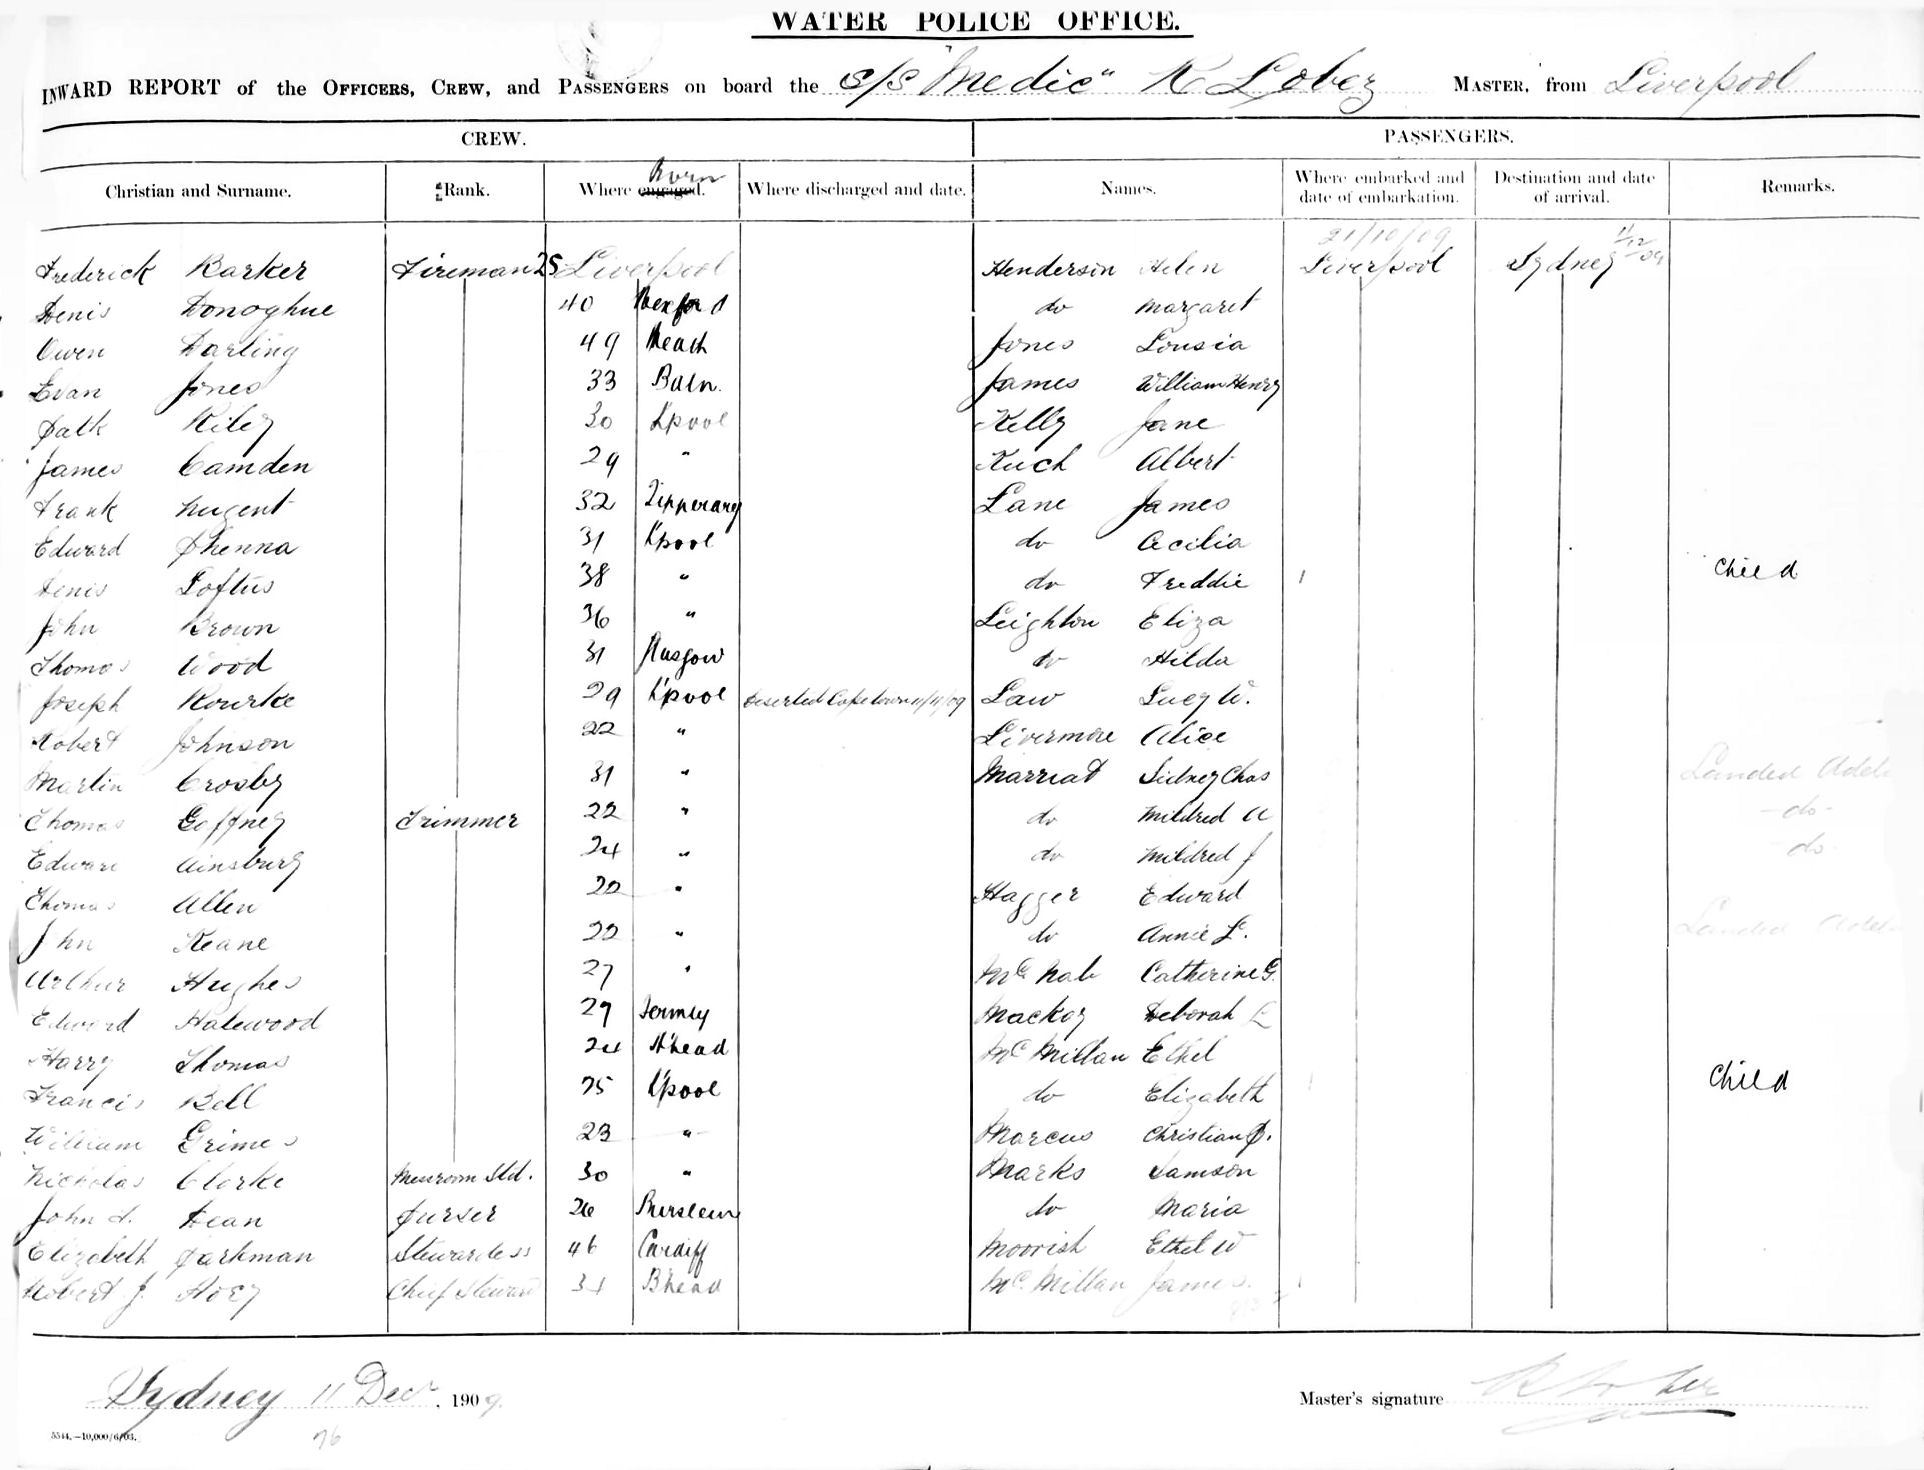 WATER POLICE OFFICE.
INWARD REPORT of the OFFICERS, CREW, and PASSENGERS on board the s/s "Medic" MASTER, from Liverpool
CREW. PASSENGERS.
Born
Christian and Surname. Rank. Where engaged. Where discharged and date. Names. Where embarked and date of embarkation. Destination and date of arrival. Remarks.
21/10/09 11/12
Frederick Barker Fireman 25 Liverpool Henderson Helen Liverpool Sydney 09
Denis Donoghue 40 Wexford do Margaret
Owen Darling 49 Meath Jones Lousia
Evan Jones 33 James William Henry
Patk Riley 30 L'pool Kelly Jane
James Camden 29 " Kuch Albert
Frank Nugent 32 Tipperary Lane James
Edward Phenna 31 L'pool do Cecilia
Denis Loftus 38 " do Freddie Child
John Brown 36 " Leighton Eliza
Thomas Wood 31 Glasgow do Hilda
Joseph Rourke 29 L'pool Deserted Capetown 11/11/09 Law Lucy W.
Robert Johnson 22 " Livermore Alice
Martin Crosby 31 " Marriat Sidney Chas Landed Adel
Thomas Gaffney Trimmer 22 " do Mildred A do
Edward Ainsbury 24 " do Mildred J do
Thomas Allen 22 " Hagger Edward
John Keane 22 " do Annie L. Landed Adel
Arthur Hughes 27 " McNab Catherine G.
Edward Halewood 29 Mackoy Deborah L
Harry Thomas 24 B'head McMillan Ethel
Francis Bell 25 L'pool do Elizabeth Child
William Grimes 23 " Marcus Christian P.
Nicholas Clarke Messroom Std. 30 " Marks Samson
John Dean Purser 26 Burslem do Maria
Elizabeth Parkman Stewardess 46 Cardiff Moorish Ethel W
Robert J. Hoey Chief Steward 31 B'head McMillan James
Sydney 11 Decr. 1909.
Master's signature
5544.—10,000/6/03.
76